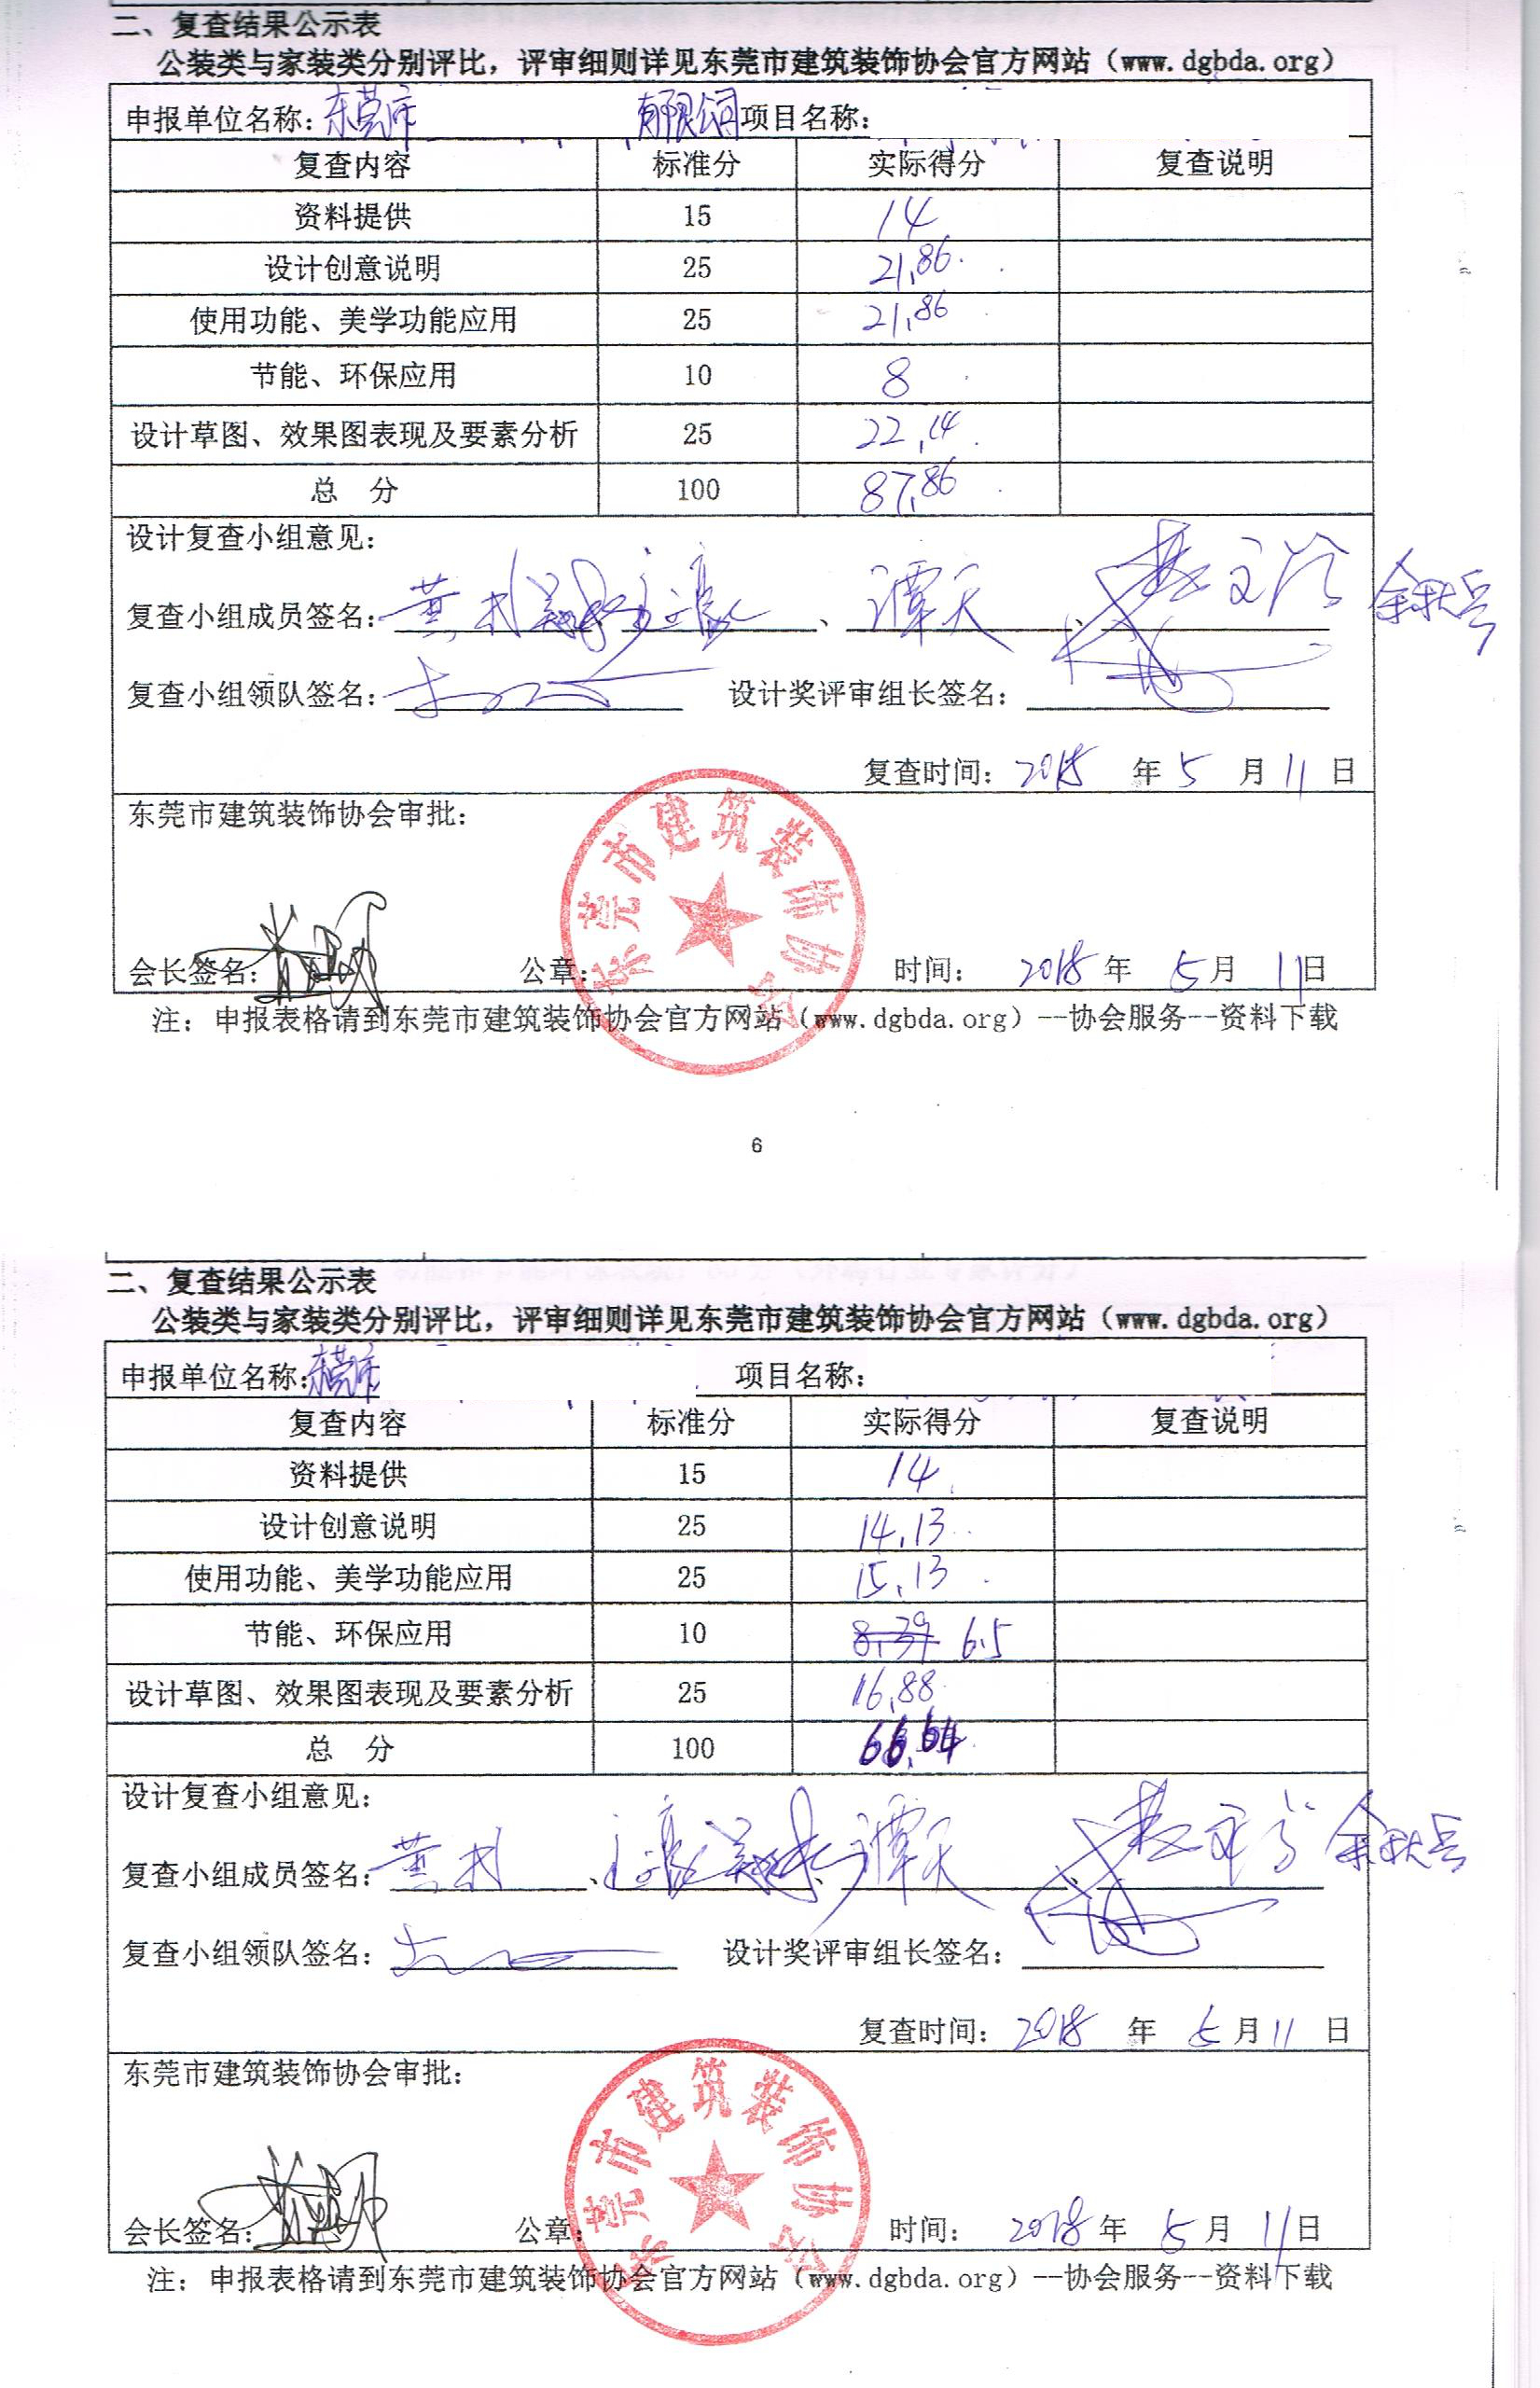 二、复查结果公示表
公装类与家装类分别评比，评审细则详见东莞市建筑装饰协会官方网站（www.dgbda.org）
申报单位名称：东莞市 有限公司 项目名称：
复查内容 标准分 实际得分 复查说明
资料提供 15 14
设计创意说明 25 21.86
使用功能、美学功能应用 25 21.86
节能、环保应用 10 8
设计草图、效果图表现及要素分析 25 22.14
总 分 100 87.86
设计复查小组意见：
复查小组成员签名：黄 、 、谭天 、
复查小组领队签名： 设计奖评审组长签名：
复查时间：2018 年 5 月 11 日
东莞市建筑装饰协会审批：
东莞市建筑装饰协会
会长签名： 公章： 时间： 2018 年 5 月 11 日
注：申报表格请到东莞市建筑装饰协会官方网站（www.dgbda.org）--协会服务--资料下载
6
二、复查结果公示表
公装类与家装类分别评比，评审细则详见东莞市建筑装饰协会官方网站（www.dgbda.org）
申报单位名称：东莞市 项目名称：
复查内容 标准分 实际得分 复查说明
资料提供 15 14
设计创意说明 25 14.13
使用功能、美学功能应用 25 15.13
节能、环保应用 10 8.39 6.5
设计草图、效果图表现及要素分析 25 16.88
总 分 100 66.64
设计复查小组意见：
复查小组成员签名：黄 、 、谭天 、
复查小组领队签名： 设计奖评审组长签名：
复查时间：2018 年 5 月 11 日
东莞市建筑装饰协会审批：
东莞市建筑装饰协会
会长签名： 公章： 时间： 2018 年 5 月 11 日
注：申报表格请到东莞市建筑装饰协会官方网站（www.dgbda.org）--协会服务--资料下载